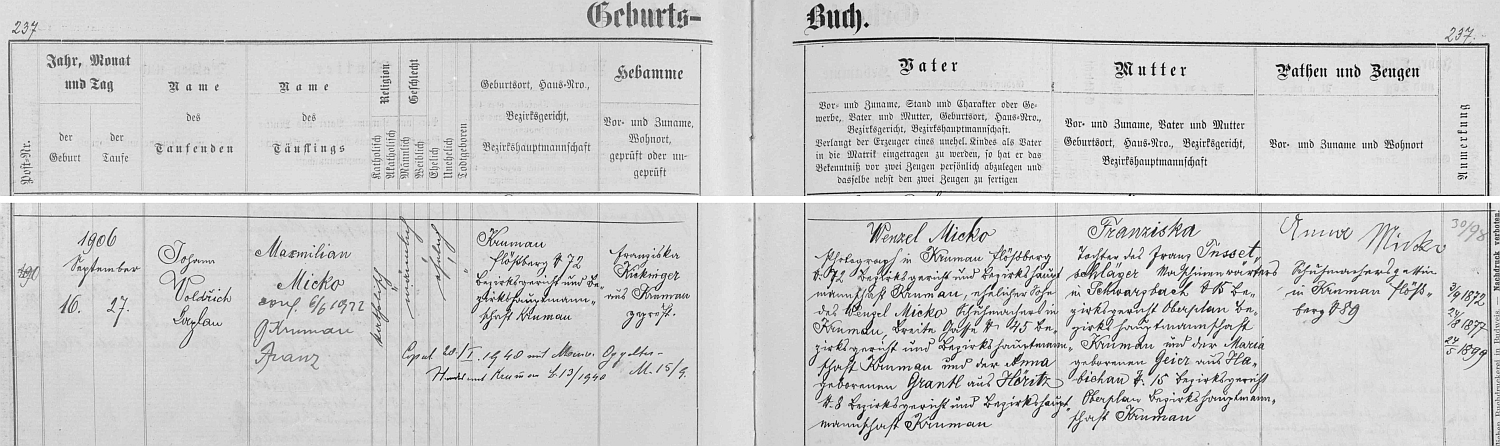 237
Geburts-
Buch.
237.
Post-Nr.
Jahr, Monat
und Tag
der
Geburt
der
Taufe
Name
des
Taufenden
Name
des
Täuflings
Religion
Katholisch
Akatholisch
Geschlecht
Männlich
Weiblich
Ehelich
Unehelich
Todtgeboren
Geburtsort, Haus-Nro.,
Bezirksgericht,
Bezirkshauptmannschaft
Hebamme
Vor- und Zuname,
Wohnort,
geprüft oder un-
geprüft
Vater
Vor- und Zuname, Stand und Charakter oder Ge-
werbe, Vater und Mutter, Geburtsort, Haus-Nro.,
Bezirksgericht, Bezirkshauptmannschaft.
Verlangt der Erzeuger eines unehel. Kindes als Vater
in die Matrik eingetragen zu werden, so hat er das
Bekenntniß vor zwei Zeugen persönlich abzulegen und
dasselbe nebst den zwei Zeugen zu fertigen
Mutter
Vor- und Zuname, Vater und Mutter
Geburtsort, Haus-Nro., Bezirksgericht,
Bezirkshauptmannschaft
Pathen und Zeugen
Vor- und Zuname und Wohnort
Anmerkung
1906
September
16. 27.
Johann
Voldřich
Kaplan
Maxmilian
Micko
conf. 6/6 1922
Kruman
Franz
katholisch
männlich
ehelich
Kruman
Flößberg № 72
Bezirksgericht und Be-
zirkshauptmann-
schaft Kruman
Franziska
aus Kruman
geprüft.
Copul. 20/I. 1940 mit
Wenzel Micko
Photograph in Kruman Flößberg
№ 72 Bezirksgericht und Bezirkshaupt
mannschaft Kruman, ehelicher Sohn
des Wenzel Micko Schuhmachers in
Kruman, Breite Gasse № 45 Be-
zirksgericht und Bezirkshauptmann-
schaft Kruman und der Anna
geborenen Grantl aus Höritz
№ 8 Bezirksgericht und Bezirkshaupt
mannschaft Kruman
Franziska
Tochter des Franz Jusset-
schläger Maschinenwärters
in Schwarzbach № 15 Be-
zirksgericht Oberplan Be-
zirkshauptmannschaft
Kruman und der Maria
geborenen Geier aus Ha-
bichau № 15 Bezirksgericht
Oberplan Bezirkshauptmann-
schaft Kruman
Anna Micko
Schuhmachersgattin
in Kruman Flöß-
berg № 89
30/98
3/9 1872
24/8 1877
24/5 1899
Buchdruckerei in Budweis. — Nachdruck verboten.